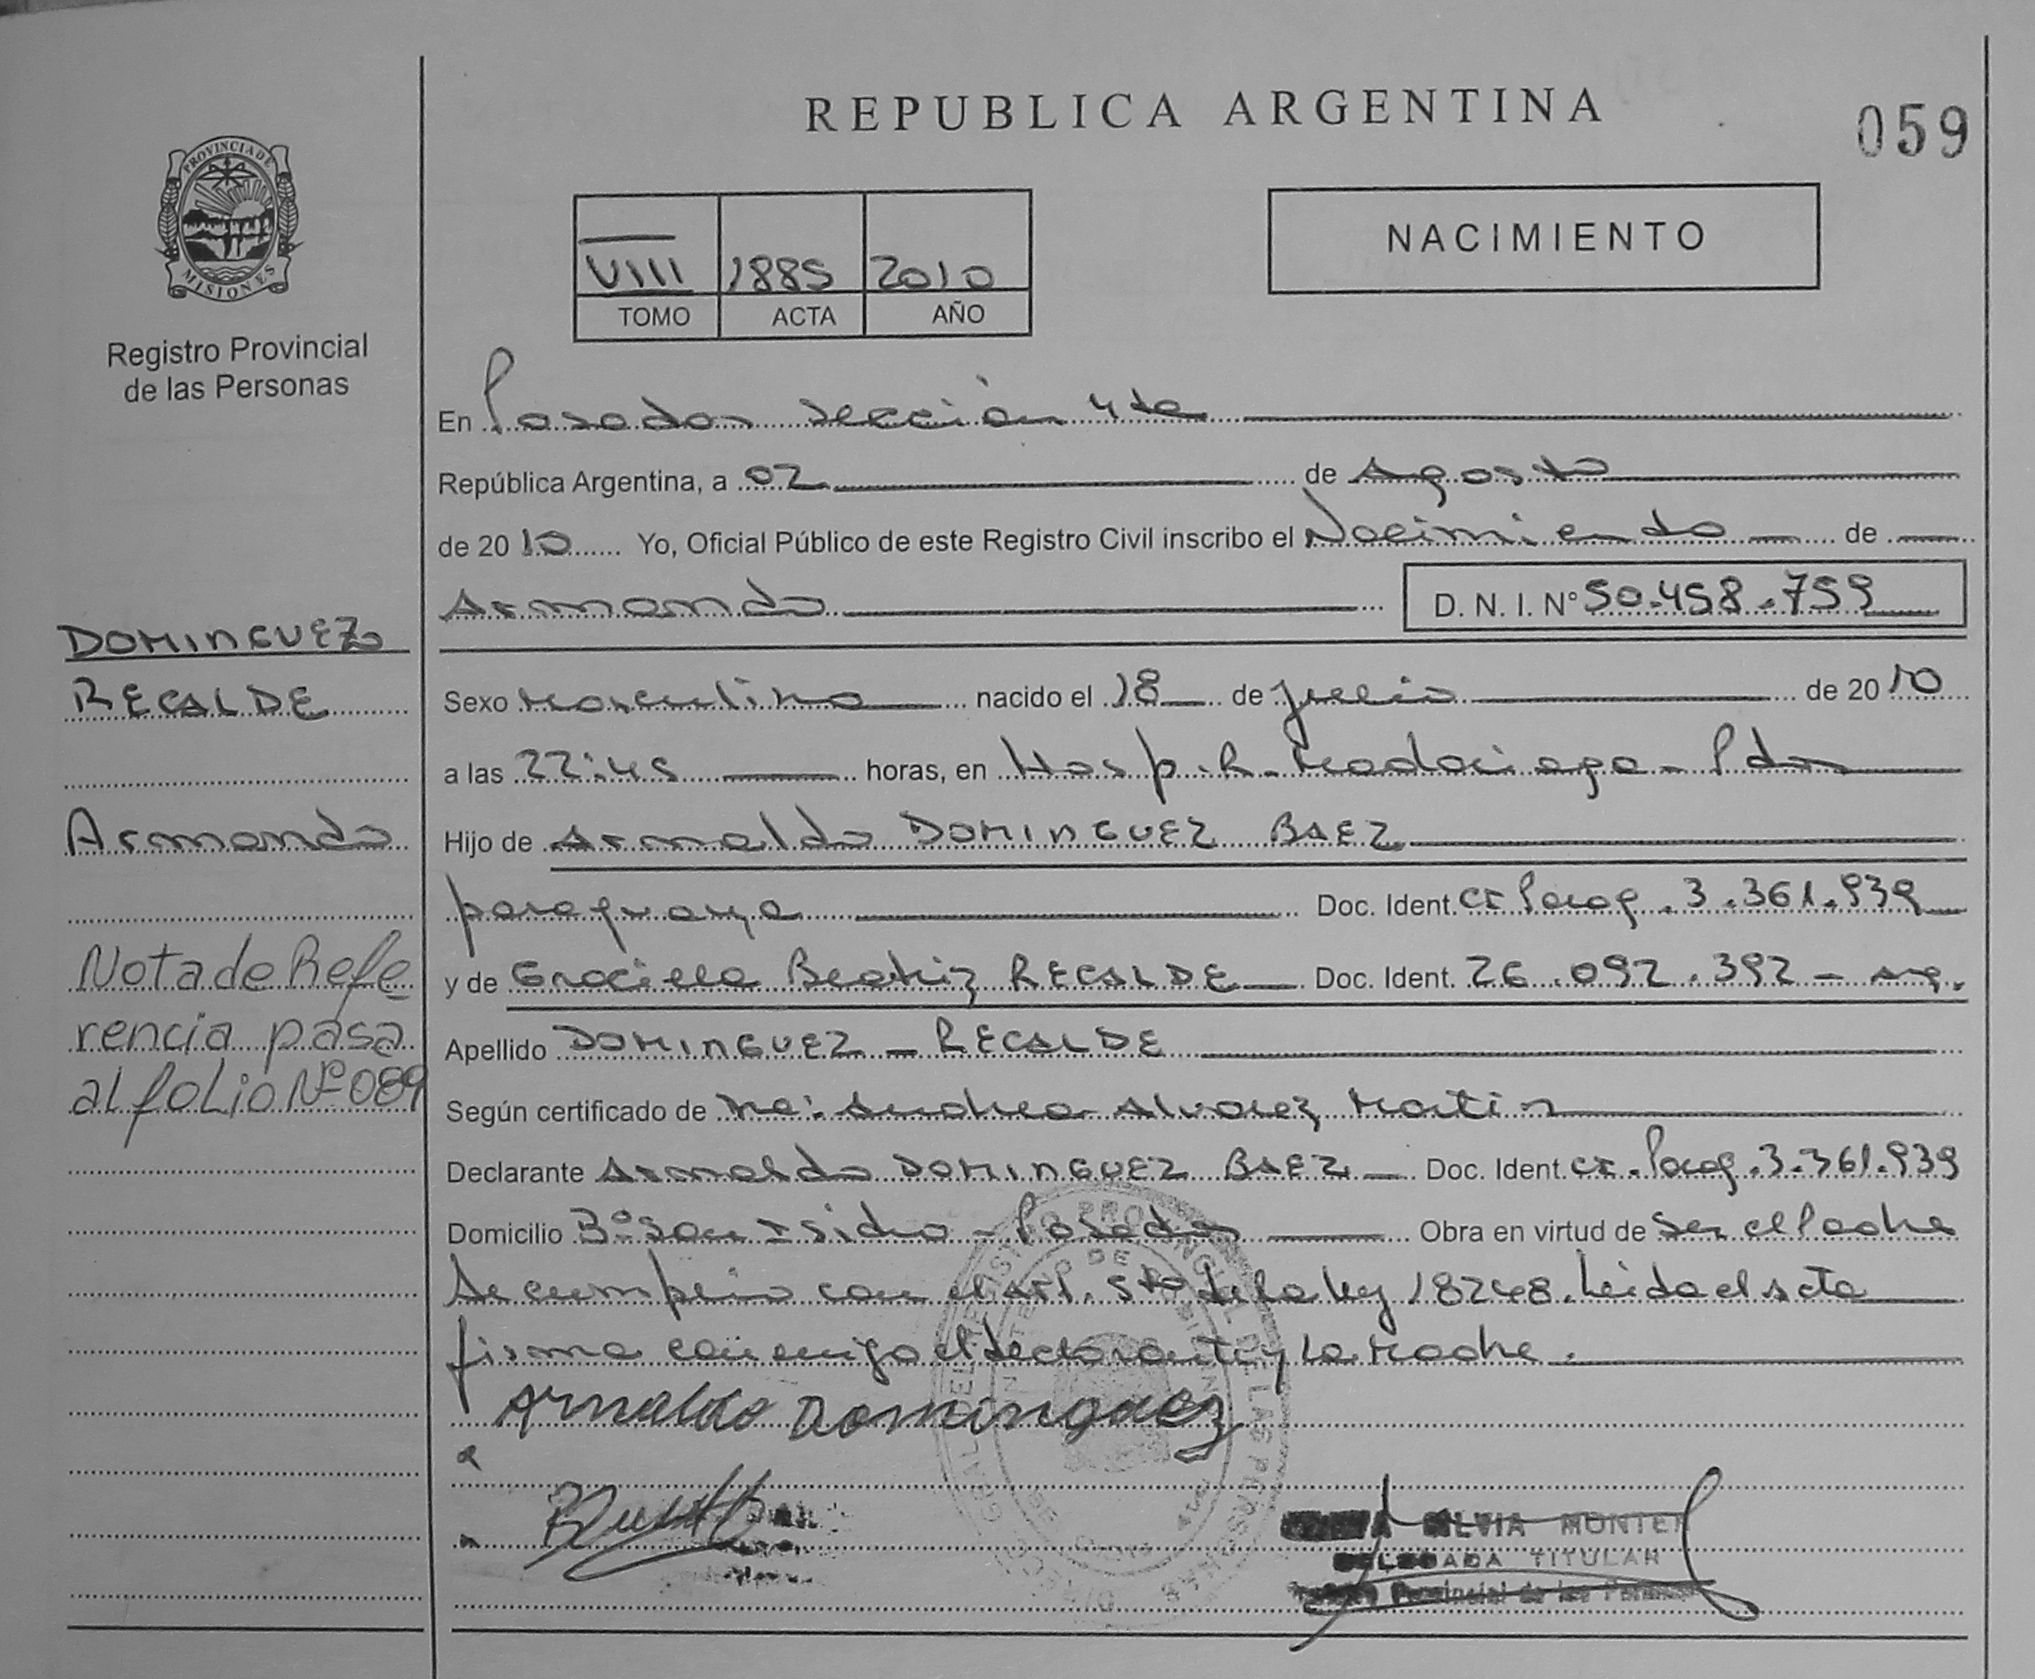 REPUBLICA ARGENTINA
059
PROVINCIA DE
MISIONES
Registro Provincial
de las Personas
VIII 1885 2010
TOMO ACTA AÑO
NACIMIENTO
En Posadas sección 4ta
República Argentina, a 02 de Agosto
de 2010 Yo, Oficial Público de este Registro Civil inscribo el Nacimiento de
Armando D. N. I. N° 50.458.759
DOMINGUEZ
RECALDE
Armando
Nota de Refe
rencia pasa
al folio Nº 089
Sexo Masculino nacido el 18 de julio de 2010
a las 22:45 horas, en Hosp. R. Madariaga - Pdas
Hijo de Arnaldo DOMINGUEZ BAEZ
paraguaya Doc. Ident. CI Parag. 3.361.939
y de Graciela Beatriz RECALDE Doc. Ident. 26.092.392 - Arg.
Apellido DOMINGUEZ - RECALDE
Según certificado de Andrea Alvarez Martin
Declarante Arnaldo DOMINGUEZ BAEZ Doc. Ident. CI. Parag. 3.361.939
Domicilio Bº San Isidro - Posadas Obra en virtud de ser el Padre
Se cumplió con el Art. 5to de la ley 18248. Leida el Acta
firma conmigo el declarante y la Madre.
Arnaldo Dominguez
SILVIA MONTE
DELEGADA TITULAR
Provincial de las